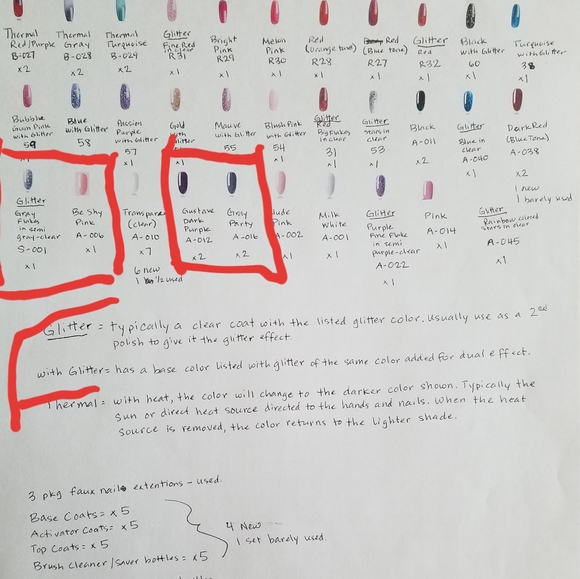 Thermal Red/Purple B-027 x2
Thermal Gray B-028 x2
Thermal Turquoise B-029 x2
Glitter Fine Red in clear R31 x1
Bright Pink R29 x1
Melon Pink R30 x1
Red (Orange tone) R28 x1
Red (Blue tone) R27 x1
Glitter Red R32 x1
Black with Glitter 60 x1
Turquoise with Glitter 38 x1
Bubble Gum Pink with Glitter 59 x1
Blue with Glitter 58 x1
Passion Purple with Glitter 57 x1
Gold with Glitter x1
Mauve with Glitter 55 x1
Blush Pink with Glitter 54 x1
Glitter Red Big Flakes in clear 31 x1
Glitter Stars in clear 53 x1
Black A-011 x2
Glitter Blue in clear A-040 x1
Dark Red (Blue Tone) A-038 x2 1 new 1 barely used
Glitter Gray Flakes in semi gray-clear S-001 x1
Be Shy Pink A-006 x1
Transparent (clear) A-010 x7 6 new 1 1/2 used
Gustave Dark Purple A-012 x2
Gray Party A-016 x2
Nude Pink A-002 x1
Milk White A-001 x1
Glitter Purple Fine Flake in semi purple-clear A-022 x1
Pink A-014 x1
Glitter Rainbow colored stars in clear A-045 x1
Glitter = typically a clear coat with the listed glitter color. Usually use as a 2nd
polish to give it the glitter effect.
with Glitter = has a base color listed with glitter of the same color added for dual effect.
Thermal = with heat, the color will change to the darker color shown. Typically the
sun or direct heat source directed to the hands and nails. When the heat
source is removed, the color returns to the lighter shade.
3 pkg faux nail extentions - used.
Base Coats = x5
Activator Coats = x5
Top Coats = x5
Brush Cleaner/Saver bottles = x5
4 New
1 set barely used.